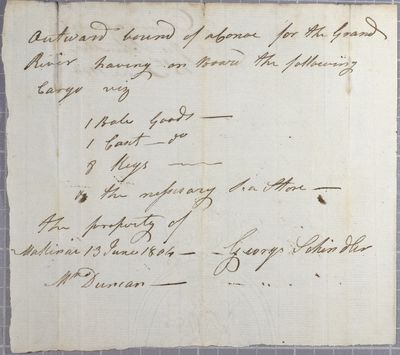 Outward bound of a Conoe for the Grand
River having on Board the following
Cargo viz
1 Bale Goods —
1 Cast — do
8 Kegs —
& the nessisary Sea Store —
the property of
Makinac 13 June 1804 — George Schindler
Duncan —